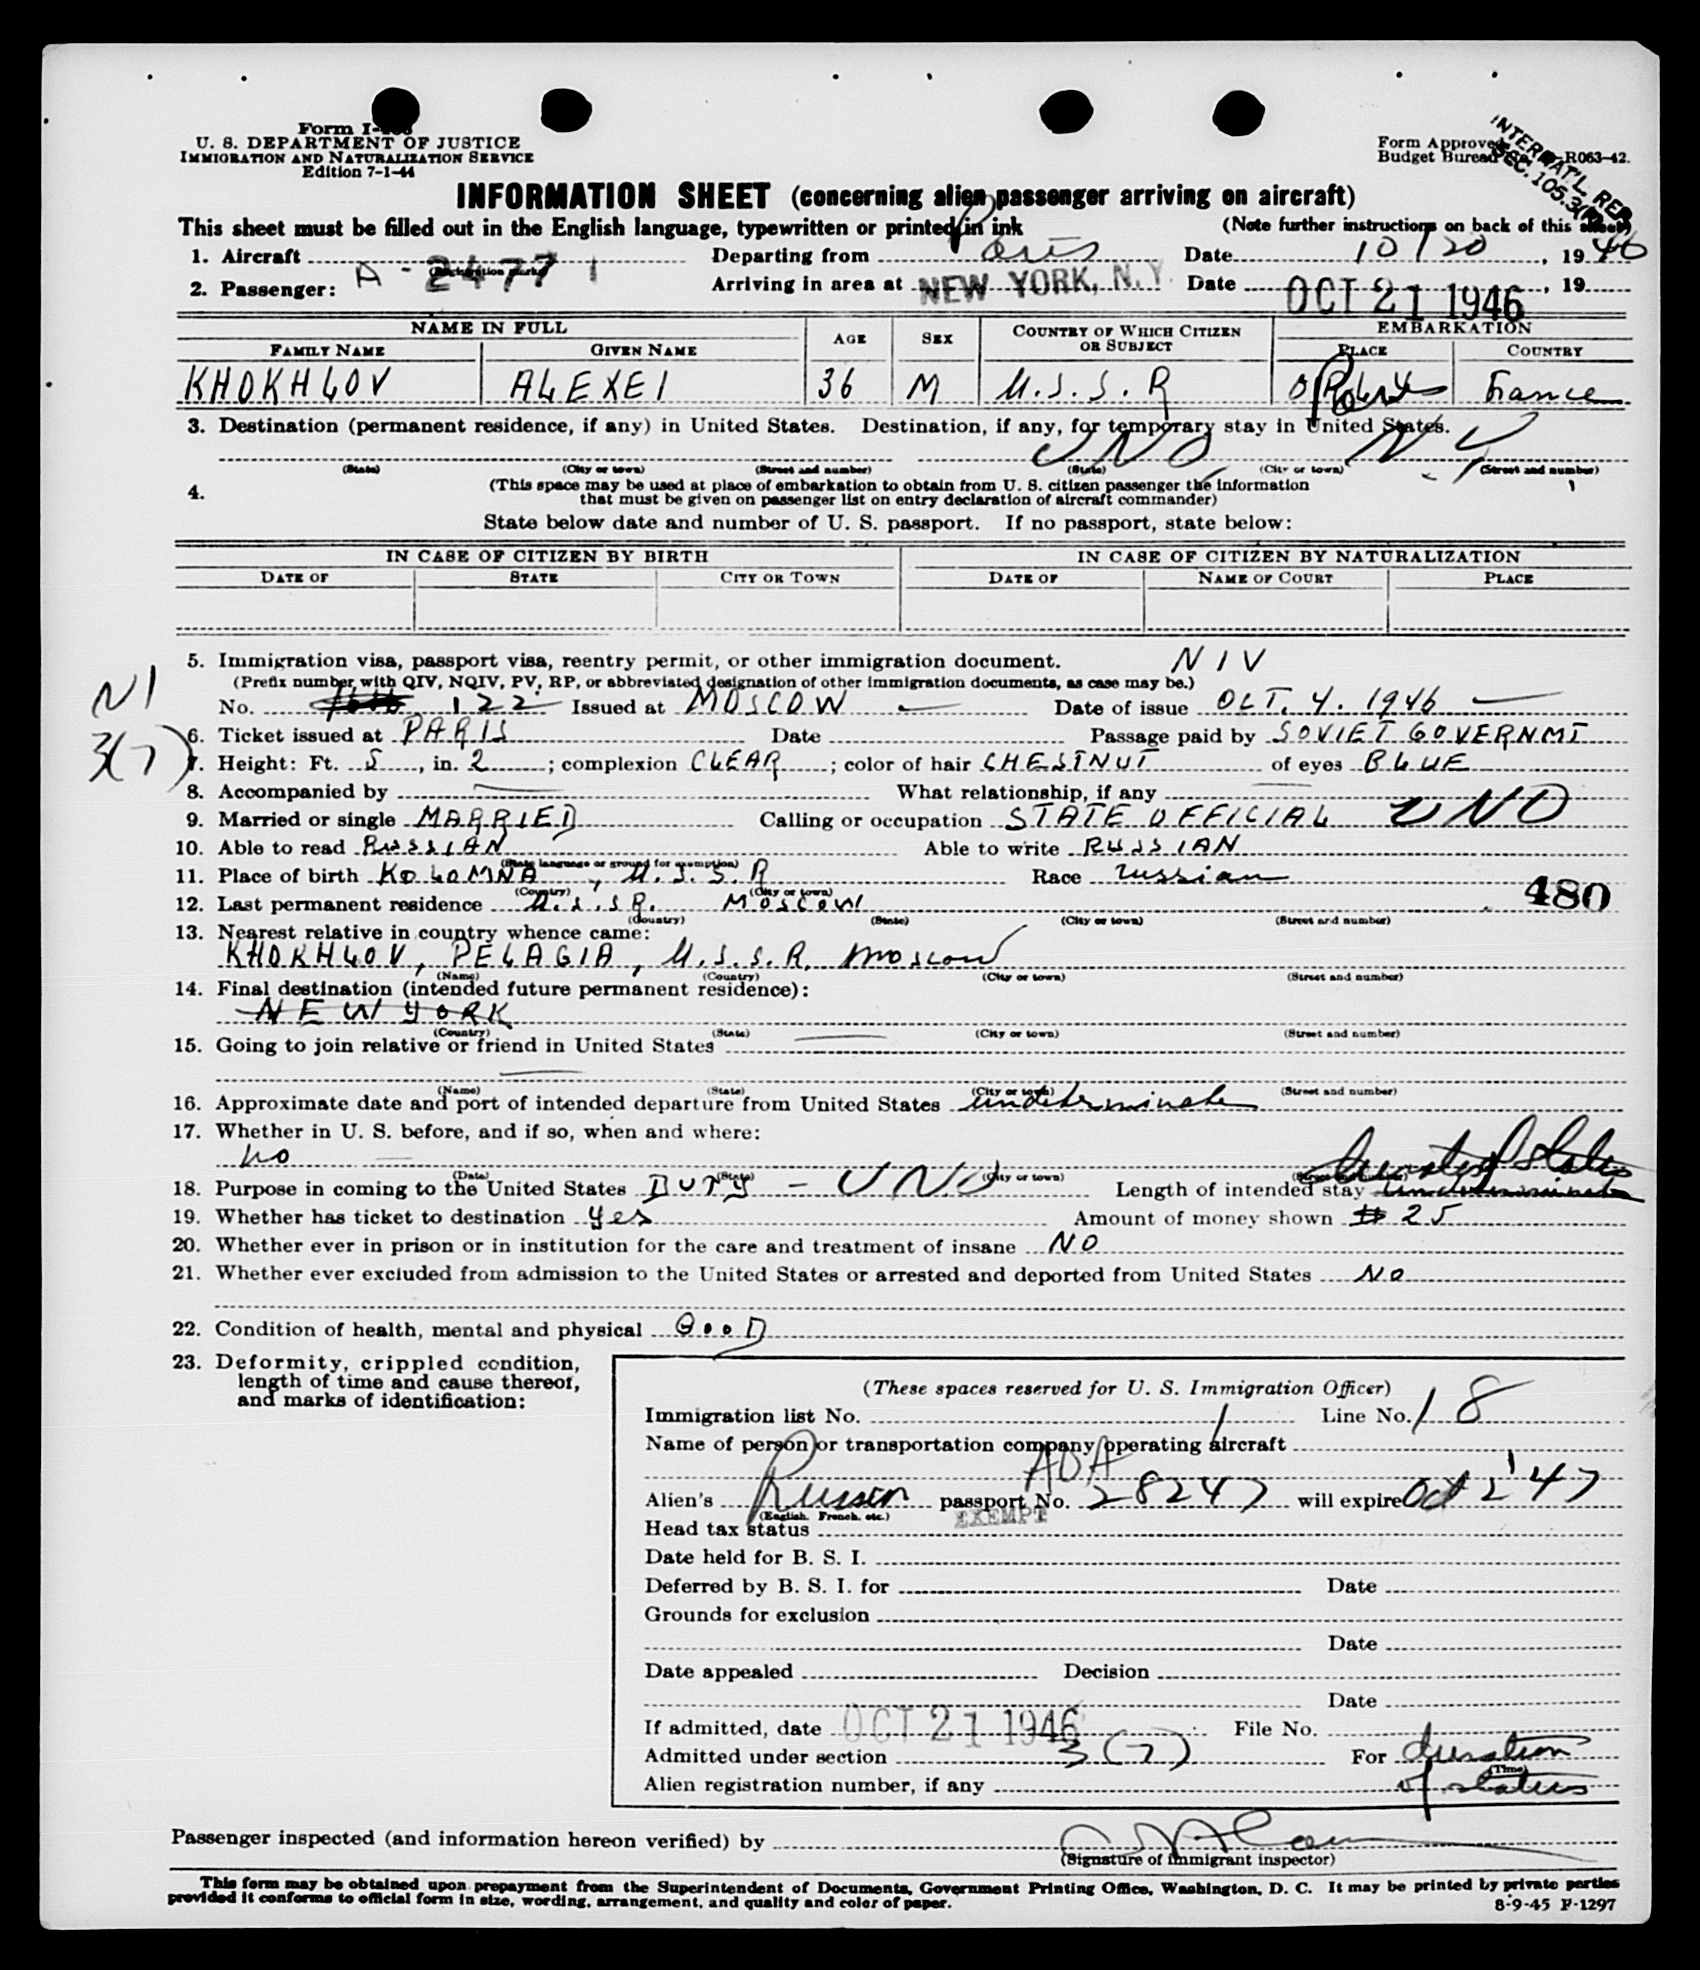 Form I-
U. S. DEPARTMENT OF JUSTICE
IMMIGRATION AND NATURALIZATION SERVICE
Edition 7-1-44
Form Approved
Budget Bureau R063-42.
INTERNAT'L REP.
SEC. 105.3
INFORMATION SHEET (concerning alien passenger arriving on aircraft)
This sheet must be filled out in the English language, typewritten or printed in ink (Note further instructions on back of this sheet)
1. Aircraft A-24771 (Registration marks) Departing from Paris Date 10/20, 1946
2. Passenger: Arriving in area at NEW YORK, N.Y. Date OCT 21 1946, 19
NAME IN FULL AGE SEX COUNTRY OF WHICH CITIZEN OR SUBJECT EMBARKATION
FAMILY NAME GIVEN NAME PLACE COUNTRY
KHOKHLOV ALEXEI 36 M U.S.S.R France
3. Destination (permanent residence, if any) in United States. Destination, if any, for temporary stay in United States.
UNO, N.Y.
(State) (City or town) (Street and number) (State) (City or town) (Street and number)
4. (This space may be used at place of embarkation to obtain from U. S. citizen passenger the information
that must be given on passenger list on entry declaration of aircraft commander)
State below date and number of U. S. passport. If no passport, state below:
IN CASE OF CITIZEN BY BIRTH IN CASE OF CITIZEN BY NATURALIZATION
DATE OF STATE CITY OR TOWN DATE OF NAME OF COURT PLACE
5. Immigration visa, passport visa, reentry permit, or other immigration document. NIV
(Prefix number with QIV, NQIV, PV, RP, or abbreviated designation of other immigration documents, as case may be.)
NI
No. 122 Issued at MOSCOW Date of issue OCT. 4. 1946
6. Ticket issued at PARIS Date Passage paid by SOVIET GOVERNMT
3(7)
7. Height: Ft. 5, in. 2; complexion CLEAR; color of hair CHESTNUT of eyes BLUE
8. Accompanied by What relationship, if any
9. Married or single MARRIED Calling or occupation STATE OFFICIAL UNO
10. Able to read RUSSIAN Able to write RUSSIAN
(State language or ground for exemption)
11. Place of birth KOLOMNA, U.S.S.R Race russian
(Country) (City or town)
480
12. Last permanent residence U.S.S.R. MOSCOW
(Country) (State) (City or town) (Street and number)
13. Nearest relative in country whence came:
KHOKHLOV, PELAGIA, U.S.S.R. Moscow
(Name) (Country) (City or town) (Street and number)
14. Final destination (intended future permanent residence):
NEW YORK
(Country) (State) (City or town) (Street and number)
15. Going to join relative or friend in United States
(Name) (State) (City or town) (Street and number)
16. Approximate date and port of intended departure from United States undeterminate
17. Whether in U. S. before, and if so, when and where:
no
(Date) (State) (City or town) (Street and number)
18. Purpose in coming to the United States DUTY - UNO Length of intended stay
19. Whether has ticket to destination yes Amount of money shown $ 25
20. Whether ever in prison or in institution for the care and treatment of insane NO
21. Whether ever excluded from admission to the United States or arrested and deported from United States NO
22. Condition of health, mental and physical GOOD
23. Deformity, crippled condition,
length of time and cause thereof,
and marks of identification:
(These spaces reserved for U. S. Immigration Officer)
Immigration list No. 1 Line No. 18
Name of person or transportation company operating aircraft
AOA
Alien's Russian passport No. 28247 will expire Oct 2 '47
(English, French, etc.)
Head tax status EXEMPT
Date held for B. S. I.
Deferred by B. S. I. for Date
Grounds for exclusion
Date
Date appealed Decision
Date
If admitted, date OCT 21 1946 File No.
Admitted under section 3(7) For duration
(Time)
Alien registration number, if any of status
Passenger inspected (and information hereon verified) by
(Signature of immigrant inspector)
This form may be obtained upon prepayment from the Superintendent of Documents, Government Printing Office, Washington, D. C. It may be printed by private parties
provided it conforms to official form in size, wording, arrangement, and quality and color of paper.
8-9-45 F-1297